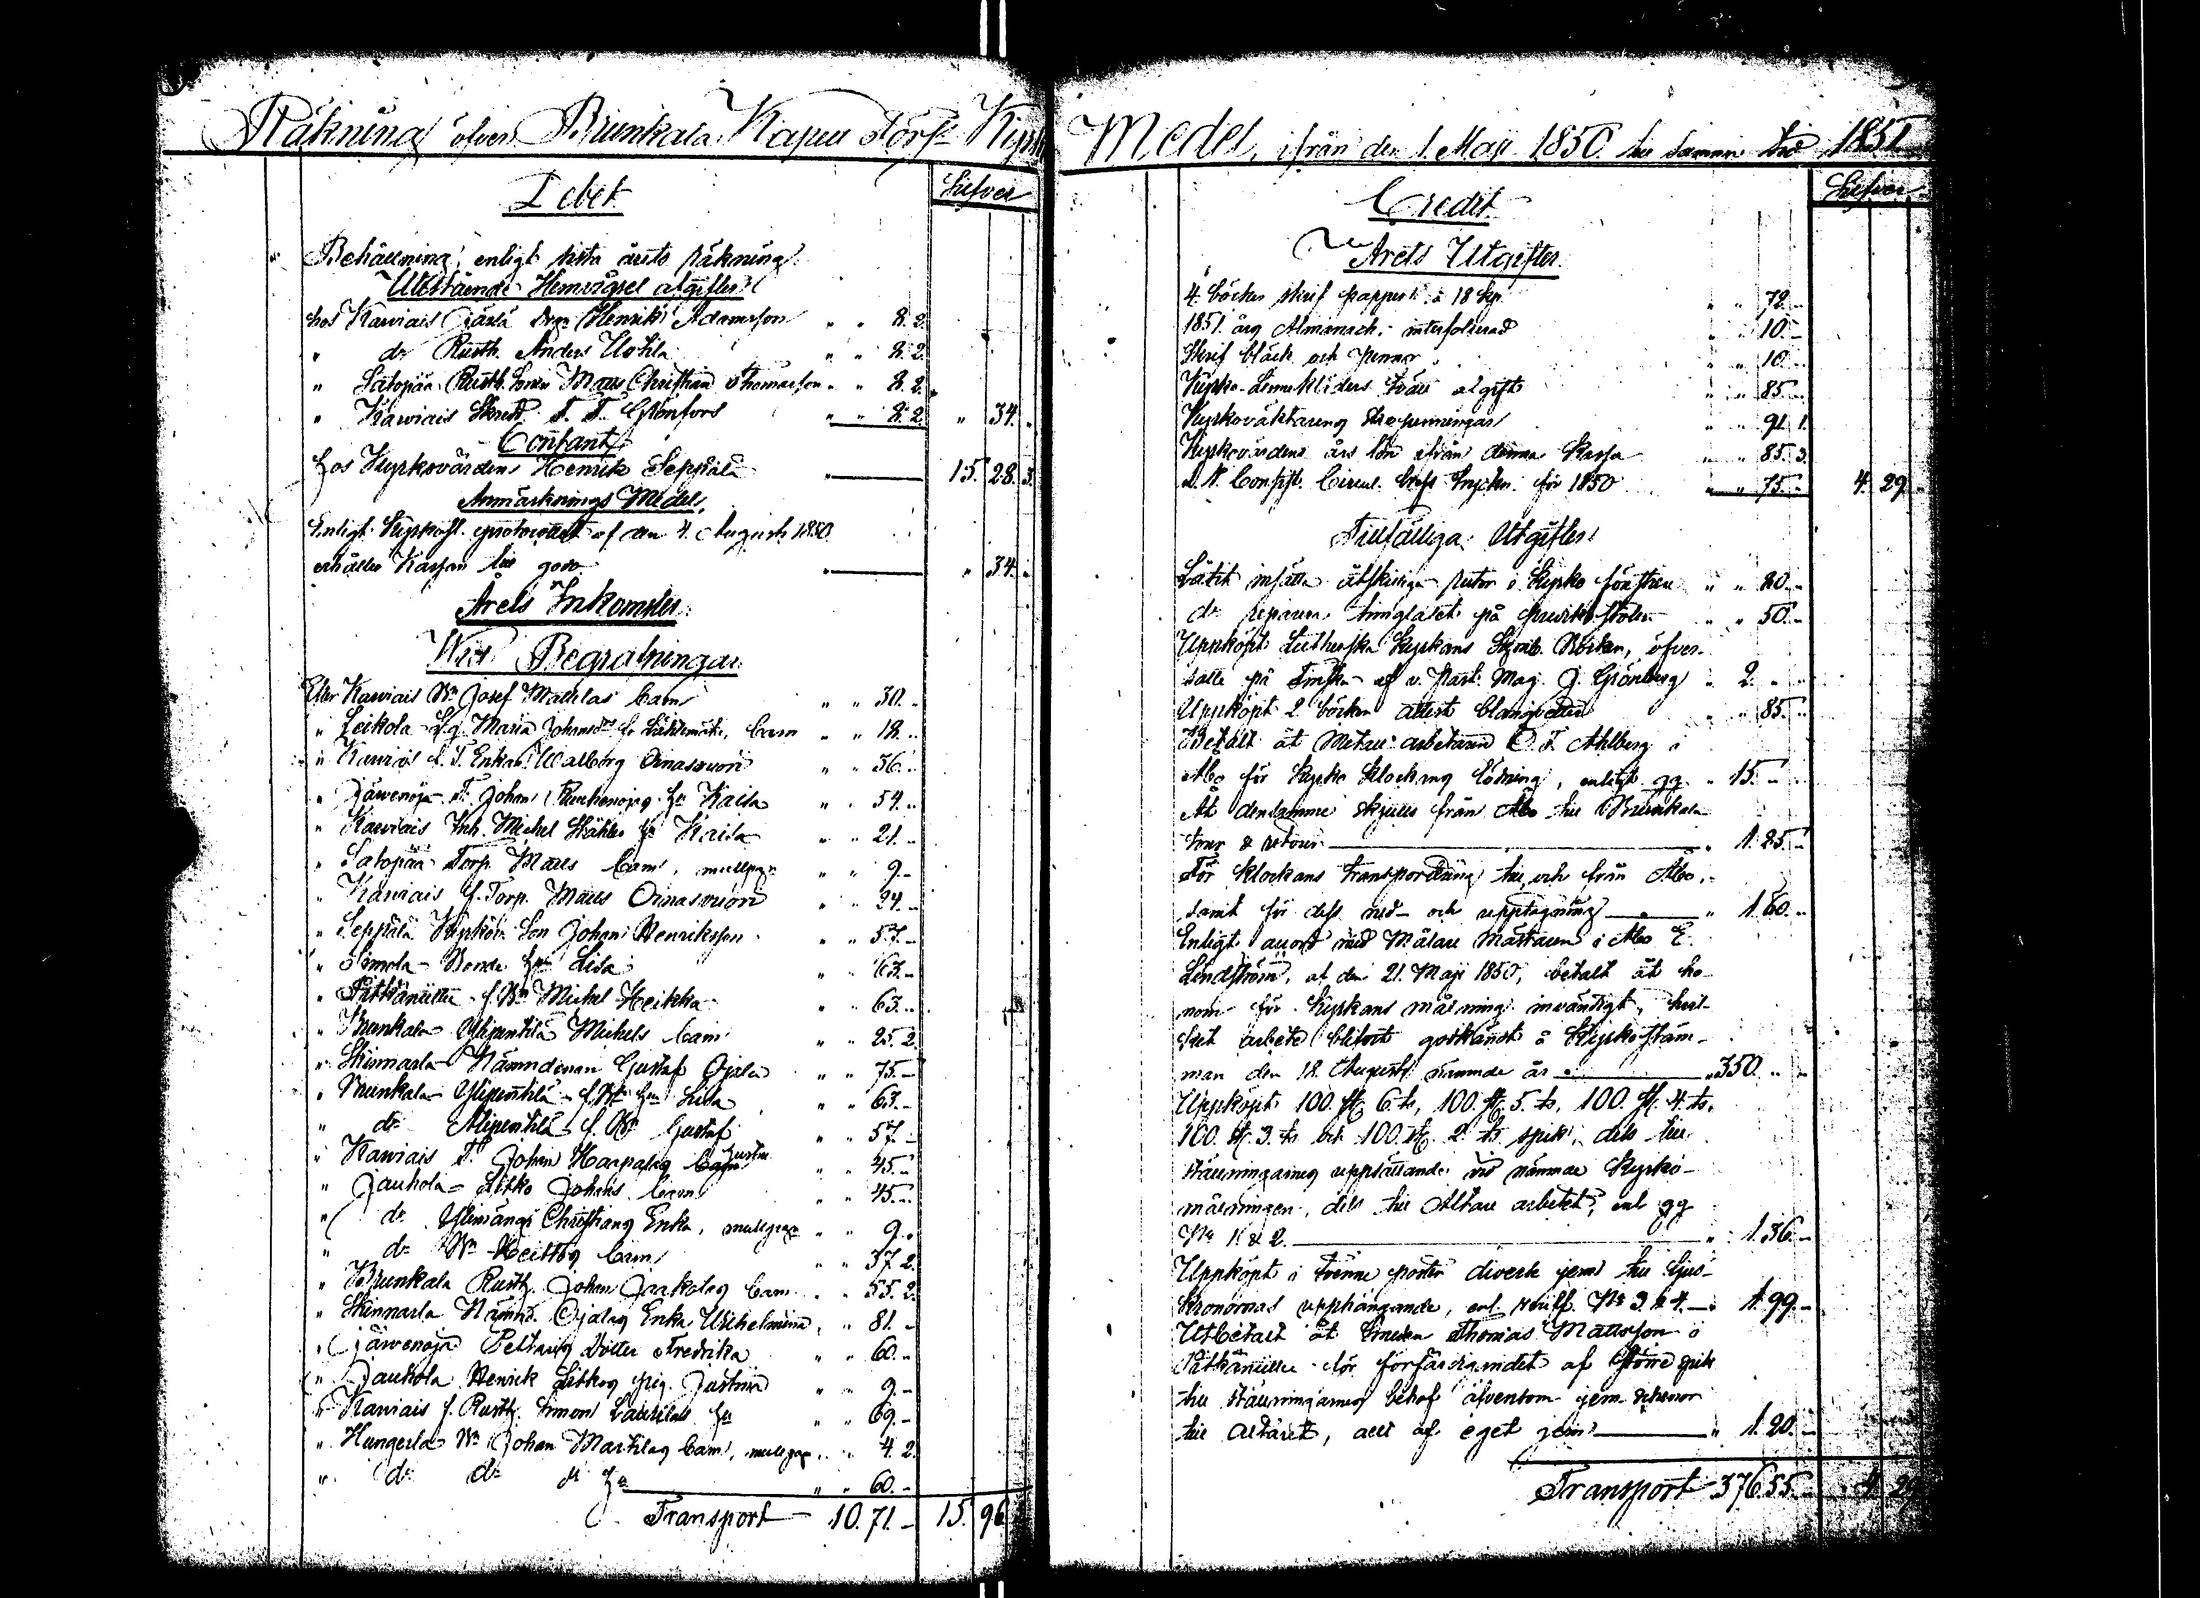 Räkning öfver Brunkala Kapell Förs. Kyrko
Debet
Silfver
Behållning enligt sista årets räkning
Utestående Hemvägsel afgifter
hos Karviais Järlä Henrik Adamsson " " 8. 2.
" do Rusth. Anders Uotila " " 8. 2.
" Satopää Rusth. Sonen Matts Christian Thomasson " " 8. 2.
" Karviais Skredd. F. F. Grönfors " " 8. 2. " 34.
Contant
hos Kyrkovärden Henrik Seppälä 15. 28. 3.
Anmärknings Medel,
Enligt Kyrkost. protocollet af den 4. Augusti 1850
erhåller Kassan till godo " 34.
Årets Inkomster
Wid Begrafningar
Efter Karviais Bn Josef Mattilas barn " " 30. "
" Leikola Maria Johansdr barn " " 18. "
" Karviais Enkan Walborg Ornasvuori " " 36. "
" Järvenoja T. Johan hu Kaisa " " 54. "
" Karviais Inh. Michel hu Kaisa " " 21. "
" Satopää Torp. Matts barn, " " 9. -
" Karviais f. Torp. Matts Ornasvuori " " 24. -
" Seppälä Kyrkov. Son Johan Henriksson " " 57. -
" Simola Bonde hu Lisa " " 63. -
" Pitkäniittu f. Bn Michel Heikka " " 63. -
" Brunkala Ylipentilä Michels barn " " 25. 2.
" Skinnarla Nämndeman Gustaf Ojala " " 75. -
" Brunkala Ylipentilä f. Bn hu Lisa " " 63. -
" do Alipentilä f. Bn Gustaf " " 57. -
" Karviais T. Johan Harpalas barn Justina " " 45. -
" Jauhola Litko Johans barn " " 45. -
" do Christians Enka, " " 9. "
" do Bn Heittos barn " " 37. 2.
" Brunkala Rusth. Johan Jaakolas barn " " 55. 2.
" Skinnarla Nämnd. Ojalas Enka Wilhelmina " " 81. -
" Järvenoja dotter Fredrika " " 60. "
" Jauhola Henrik Litkos pig. Justina " " 9. -
" Karviais f. Rusth. Simon Laurilas hu " " 69. -
" Hungerla Bn Johan Martilas barn, " " 4. 2.
" do do hu " " 60. -
Transport 10. 71. - 15. 96
Medel, ifrån den 1. Maji 1850 till samma tid 1851
Credit
Silfver
Årets Utgifter
4. böcker skrif papper à 18 kp. " " 72. -
1851. årg Almanach. interfolierad " " 10. -
Skrif bläck och pennor " " 10. -
Kyrko Linnekläders tvätt afgift " " 85. -
Kyrkoväktarens Skopenningar " " 91. 1.
Kyrkovärdens års lön ifrån denna Kassa " " 85. 3.
d. N. Consist. Circul. bref trycken. för 1850 " " 75. - 4. 29.
Tillfälliga Utgifter
Låtit insätta åtskilliga rutor i Kyrko fönstren " " 80. -
do reparera timglaset på predikstolen " " 50. -
Uppköpt Lutherska Kyrkans Symb. Böcker, öfver
satte på Finska af v. Past. Mag. J. Grönberg " 2. " "
Uppköpt 2. böcker attest blanquetter " " 85. "
Betalt åt Metall arbetaren O. F. Ahlberg i
Åbo för Kyrko Klockans lödning, enligt qz. " 15. -
Åt densamme skjuts från Åbo till Brunkala
tour & retour " 1. 85. -
För Klockans transportering till och från Åbo,
samt för dess ned- och upptagning " 1. 60. "
Enligt ackord med Målare Mästaren i Åbo E.
Lindström, af den 21. Maji 1850, betalt åt ho-
nom för Kyrkans målning invändigt, hvil-
ket arbete blifvit godkänt å Kyrkostäm-
man den 18. Augusti nämnde år " 350. " "
Uppköpt 100. st. 6 ts, 100. st. 5. ts, 100. st. 4. ts,
100. st. 3. ts och 100. st. 2. ts spik, dels till
ställningarnes uppsättande vid nämnde Kyrko-
målningen, dels till Altare arbetet, enl. qz
No 1 & 2. " 1. 36. -
Uppköpt i tvenne poster diverse jern till ljus-
kronornas upphängande, enl. verif. No 3. & 4. " 1. 99. -
Utbetalt åt Smeden Thomas Mattsson i
Pitkäniittu för förfärdigandet af större spik
till ställningarnes behof äfvensom jern skenor
till altaret, allt af eget jern " 1. 20. -
Transport 376. 55. - 4. 29